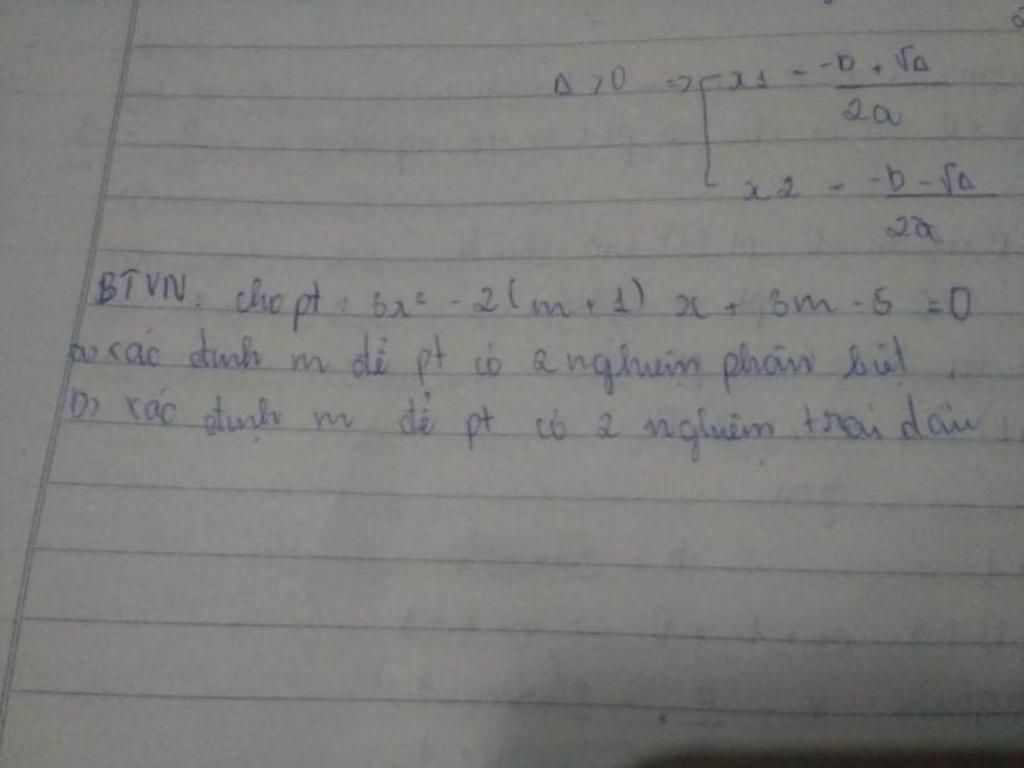 Δ > 0 => x1 = -b + √Δ / 2a
x2 = -b - √Δ / 2a
BTVN: cho pt: 3x² - 2(m + 1) x + 3m - 5 = 0
a) xác định m để pt có 2 nghiệm phân biệt.
b) xác định m để pt có 2 nghiệm trái dấu